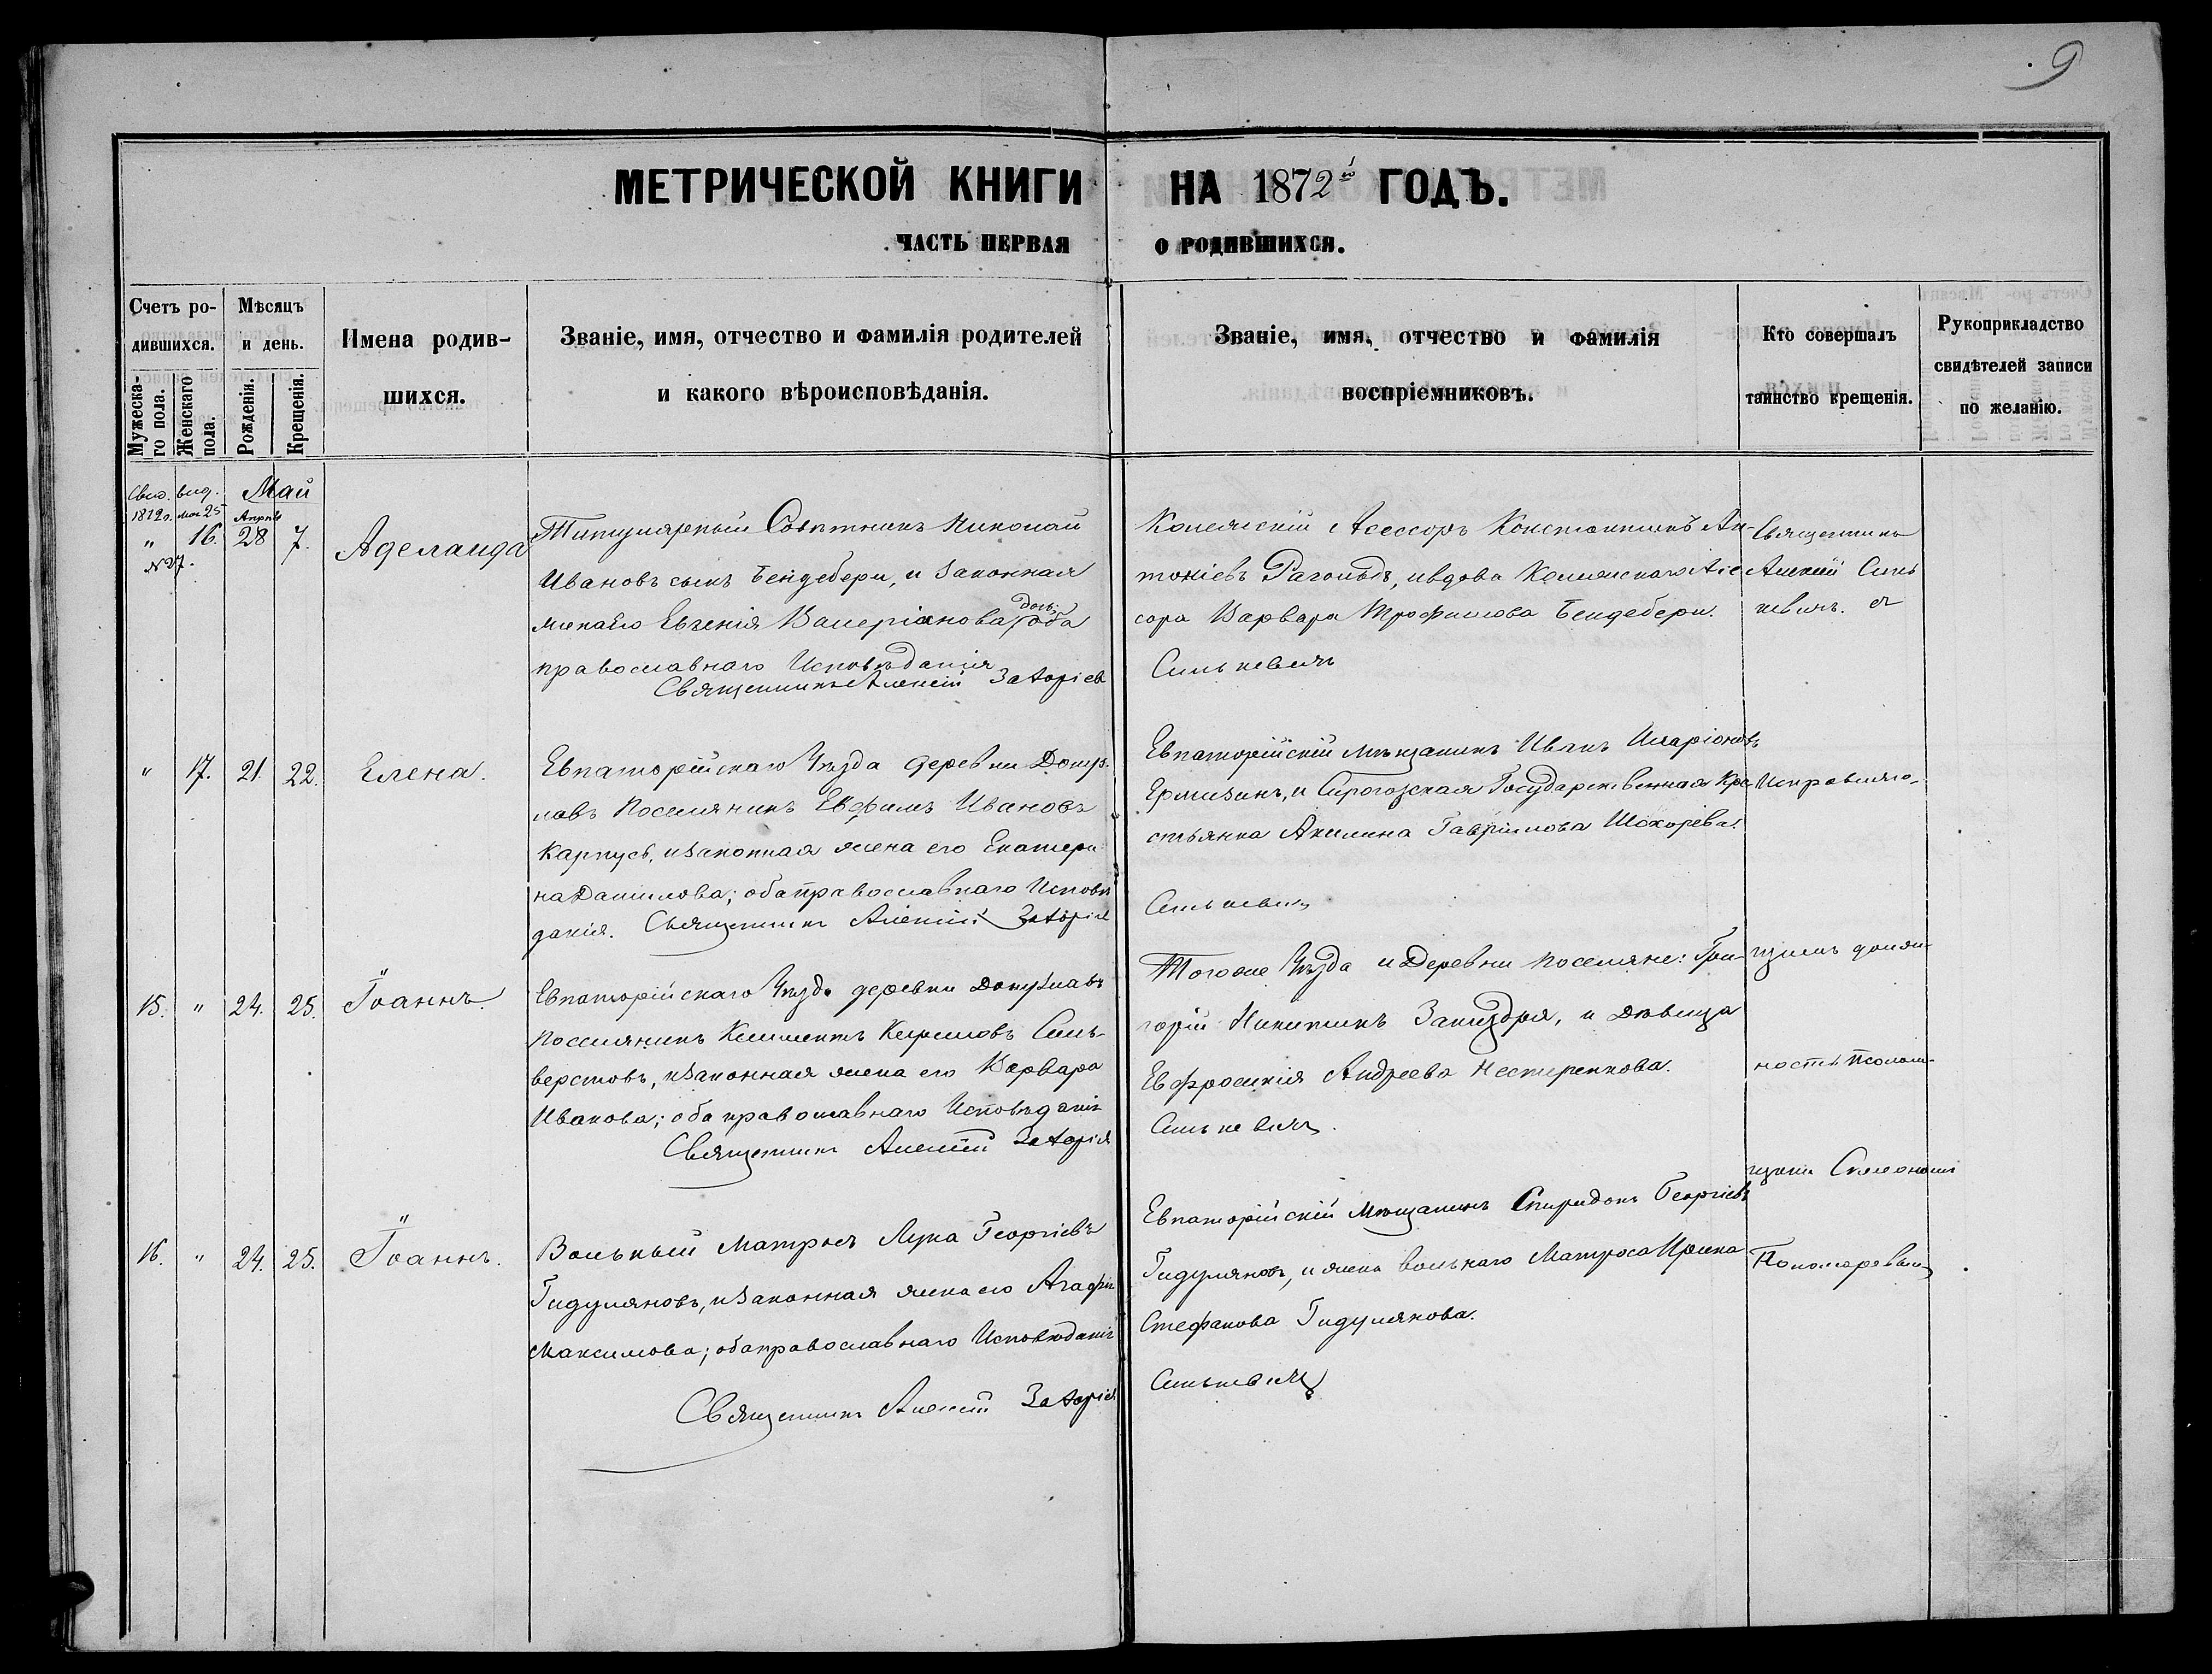 9
МЕТРИЧЕСКОЙ КНИГИ НА 1872й ГОДЪ.
ЧАСТЬ ПЕРВАЯ О РОДИВШИХСЯ.
Счетъ ро-
дившихся.
Мужеска-
го пола.
Женскаго
пола.
Мѣсяцъ
и день.
Рожденія.
Крещенія.
Имена родив-
шихся.
Званіе, имя, отчество и фамилія родителей
и какого вѣроисповѣданія.
Званіе, имя, отчество и фамилія
воспріемниковъ.
Кто совершалъ
таинство крещенія.
Рукоприкладство
свидѣтелей записи
по желанію.
Май
Свид. выд.
25
Апрѣля
" 16. 28 7.
№ 27.
Аделаида
Титулярный Совѣтникъ Николай
Ивановъ сынъ Бендебери, и законная
жена его Евгенія Валеріанова дочь; оба
православнаго Исповѣданія
Священникъ Алексій
Колежскій Асессоръ Константинъ Ан-
тоніевъ, и вдова Колежскаго Асе
сора Варвара Трофимова Бендебери.
Синькевичъ
Священникъ
Алексій Синь
кевичъ. съ
" 17. 21. 22.
Елена.
Евпаторійскаго Уѣзда деревни Донуз-
лавъ Поселянинъ Евфимъ Ивановъ
Карпусь, и законная жена его Екатери-
на Данилова; оба православнаго Исповѣ
данія. Священникъ Алексій
Евпаторійскій мѣщанинъ Иванъ Иларіоновъ
и Сирогозская Государственная Кре-
стьянка Акилина Гавріилова Шохорева.
Синькевичъ
Исправляю-
15. " 24. 25.
Іоаннъ.
Евпаторійскаго Уѣзда деревни Донузлавъ
Поселянинъ Климентъ Кириловъ Силь-
верстовъ, и законная жена его Варвара
Иванова; оба православнаго Исповѣданія
Священникъ Алексій
Того же Уѣзда и Деревни поселяне: Гри-
горій Никитинъ, и Дѣвица
Евфросинія Андреева Нестеренкова.
Синькевичъ.
щимъ долж-
ность Псалом-
щика
Пономаревымъ
16. " 24. 25.
Іоаннъ.
Вольный Матросъ Лука Георгіевъ
Гидуляновъ, и законная жена его Агафія
Максимова; оба православнаго Исповѣданія
Священникъ Алексій
Евпаторійскій Мѣщанинъ Спиридонъ Георгіевъ
Гидуляновъ, и жена вольнаго Матроса Ирина
Стефанова Гидулянова.
Синькевичъ